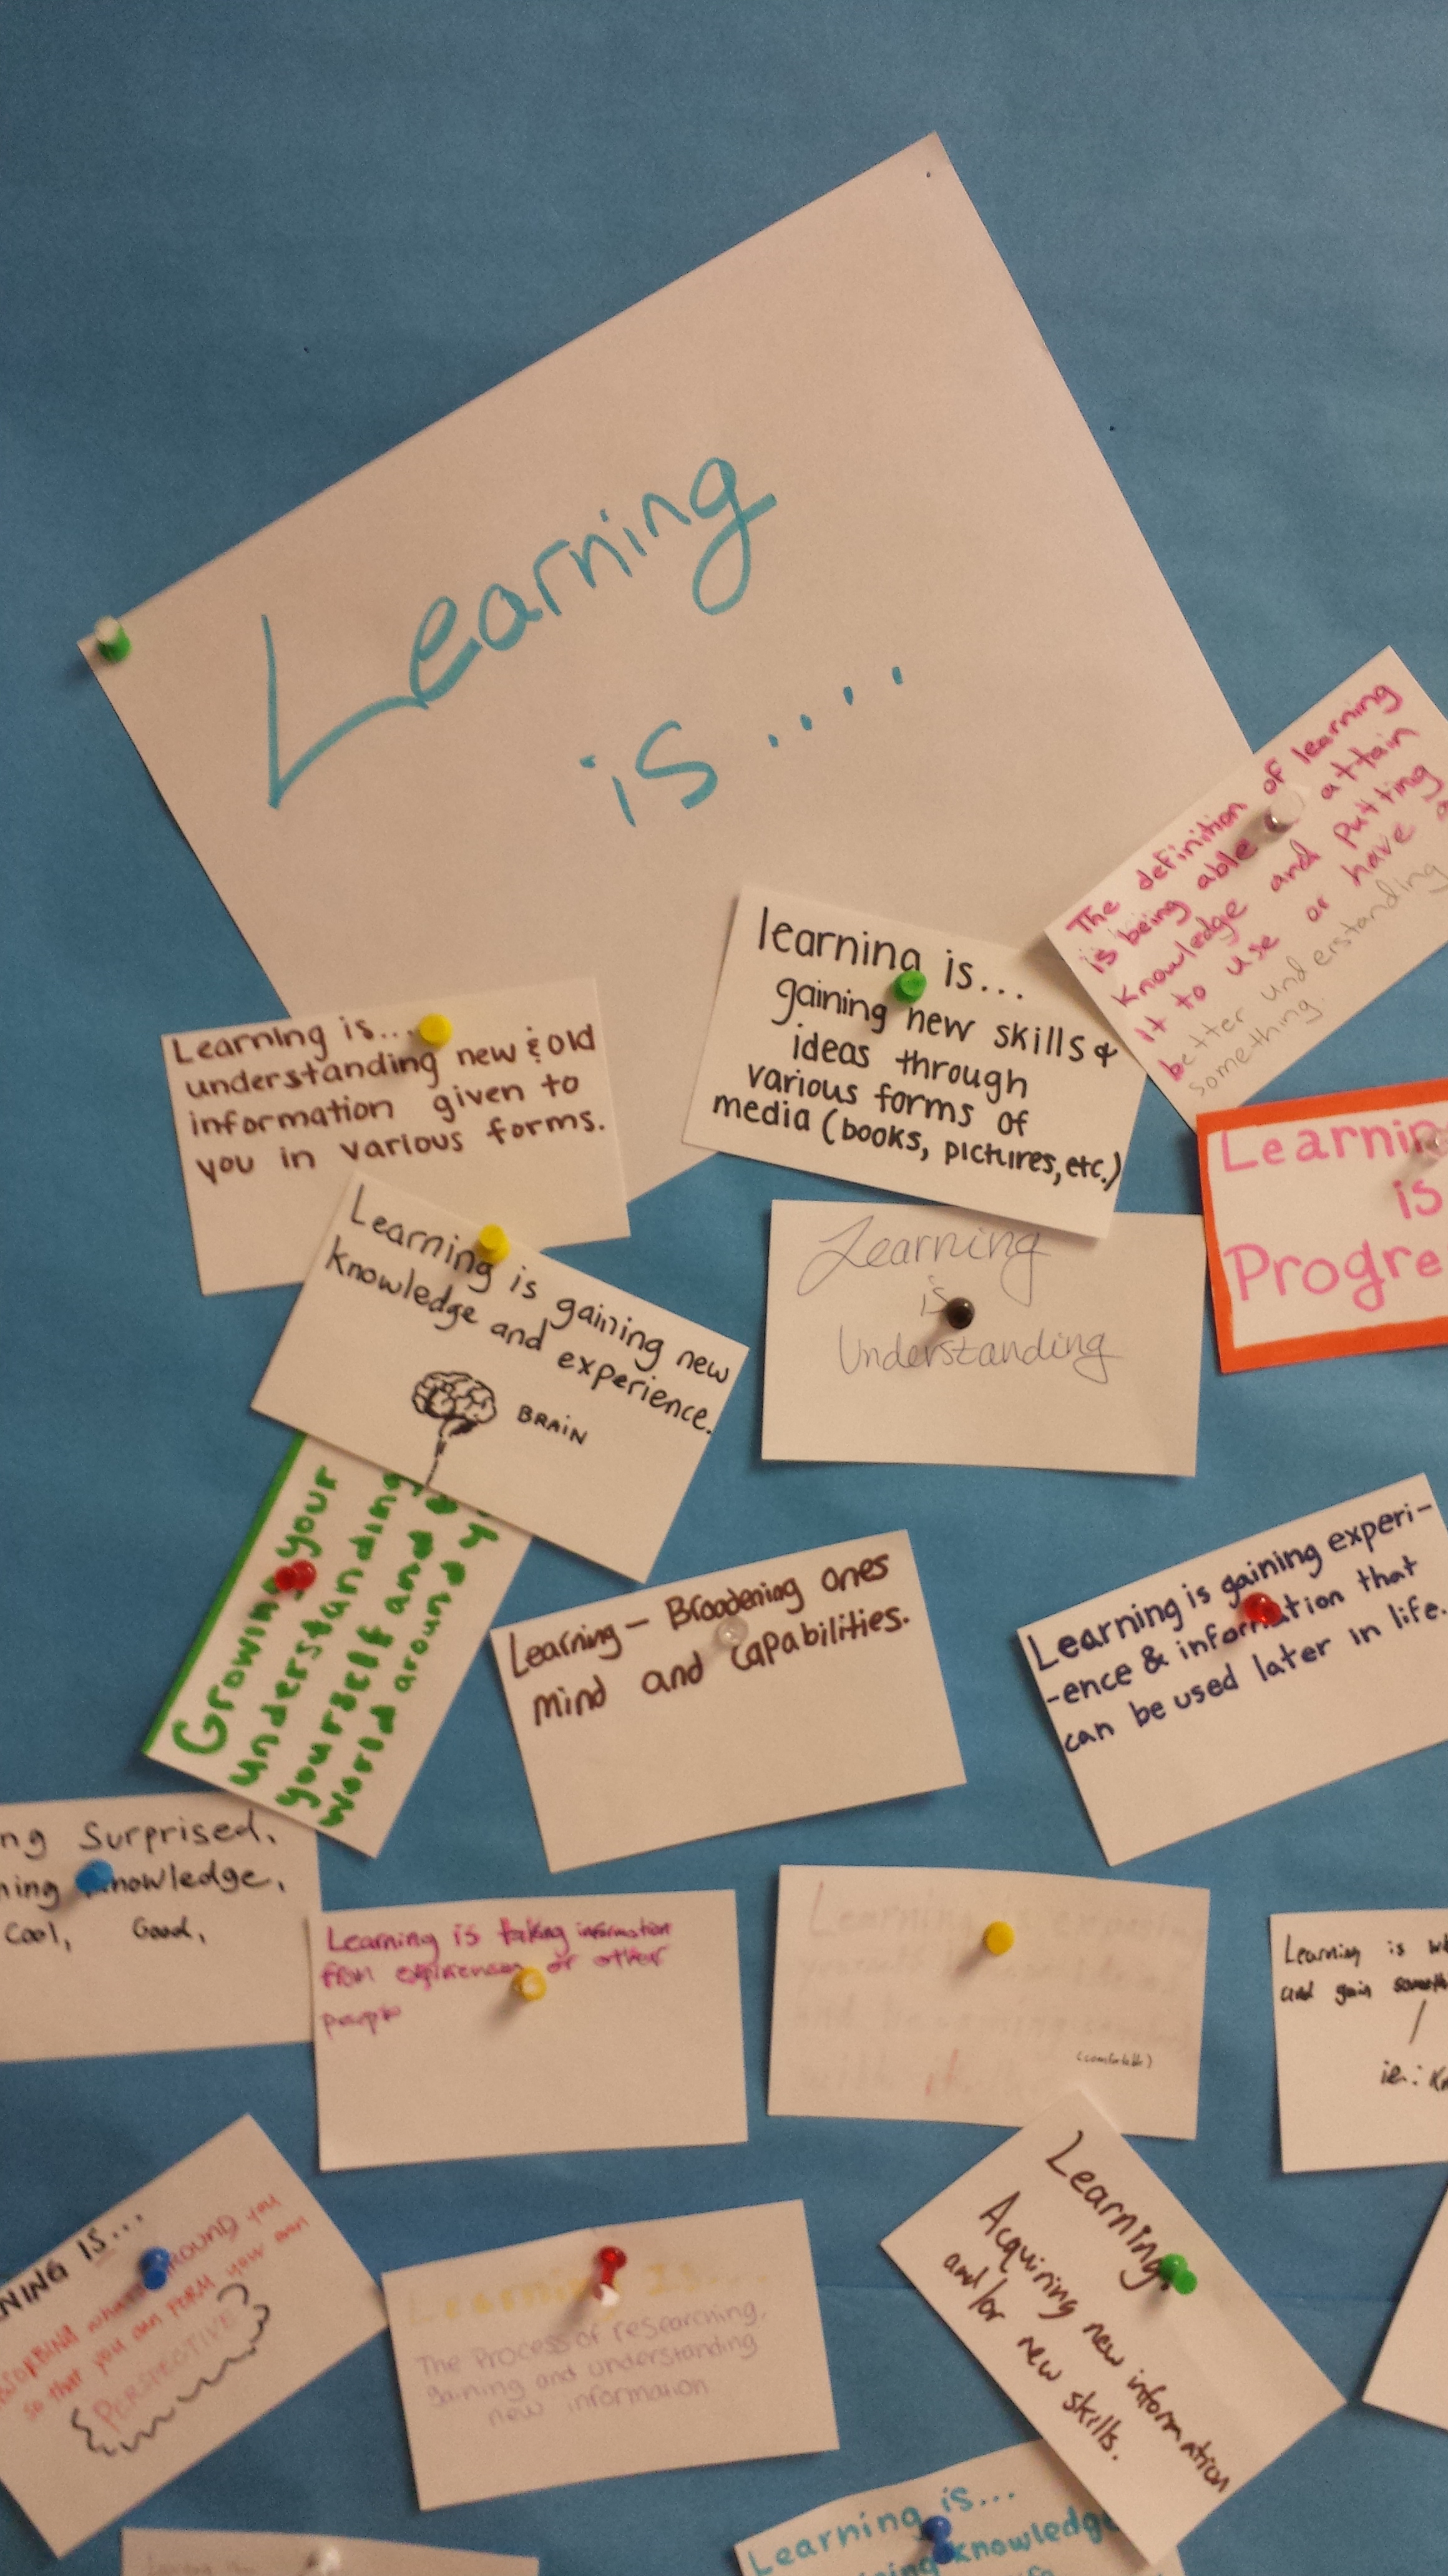 Learning
is....
The definition of learning
is being able attain
knowledge and putting
it to use or have a
better understanding
something.
learning is...
gaining new skills &
ideas through
various forms of
media (books, pictures, etc.)
Learning is...
understanding new & old
information given to
you in various forms.
Learnin
is
Progre
Learning
is
Understanding
Learning is gaining new
knowledge and experience.
BRAIN
Growing your
understanding
yourself and
world around y
Learning - Broadening ones
mind and capabilities.
Learning is gaining experi-
-ence & information that
can be used later in life.
ng Surprised,
ning knowledge,
Cool, Good,
Learning is taking information
from expierences or other
people
Learning is
(comfortable)
Learning is w
and gain someth
ie: Kn
NING IS...
AROUND you
so that you can FORM your own
PERSPECTIVE
Learning Is...
The Process of researching,
gaining and understanding
new information
Learning:
Acquiring new information
and/or new skills.
Learning is...
knowledge